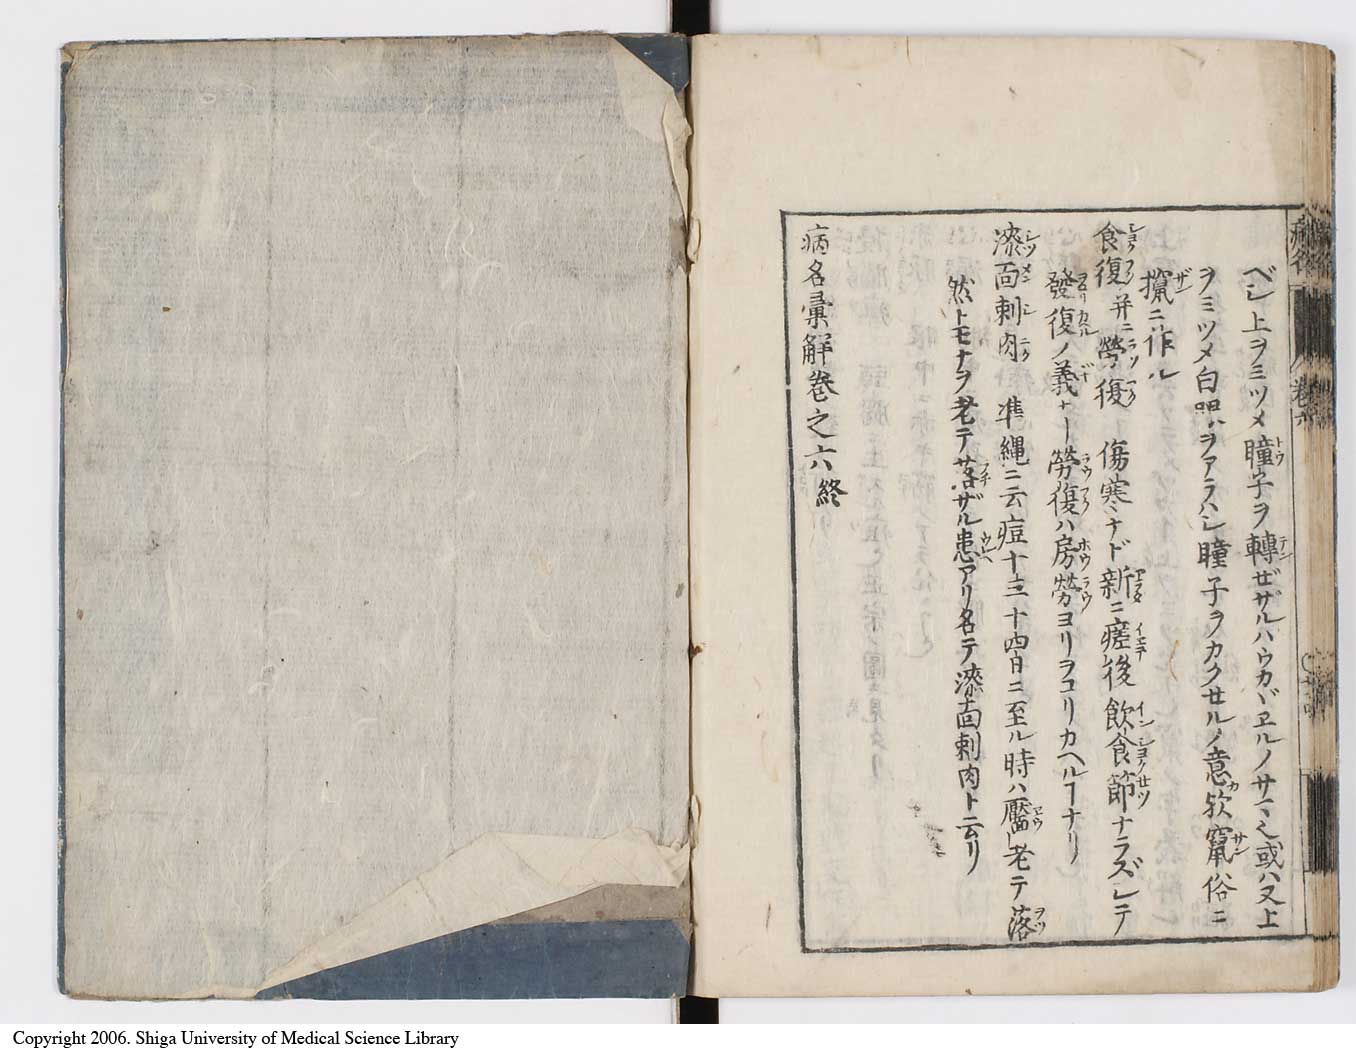 ベシ上ヲミツメ瞳子ヲ轉ゼザルハウカヾヱルノサマ也或ハ又上
ヲミツメ白眼ハヲアラハシ瞳子ヲカクセルノ意歟竄俗ニ
攛ニ作ル
食復并ニ勞復 傷寒ナド新ニ瘥後飲食節ナラズシテ
發復ノ義ナリ勞復ハ房勞ヨリヲコリカヘルヿナリ
漆面刺肉 準縄ニ云痘十三十四日ニ至ル時ハ靨老テ落
然トモナヲ老テ落ザル患アリ名テ漆面刺肉ト云リ
病名彙解卷之六終
病名
卷六
Copyright 2006. Shiga University of Medical Science Library